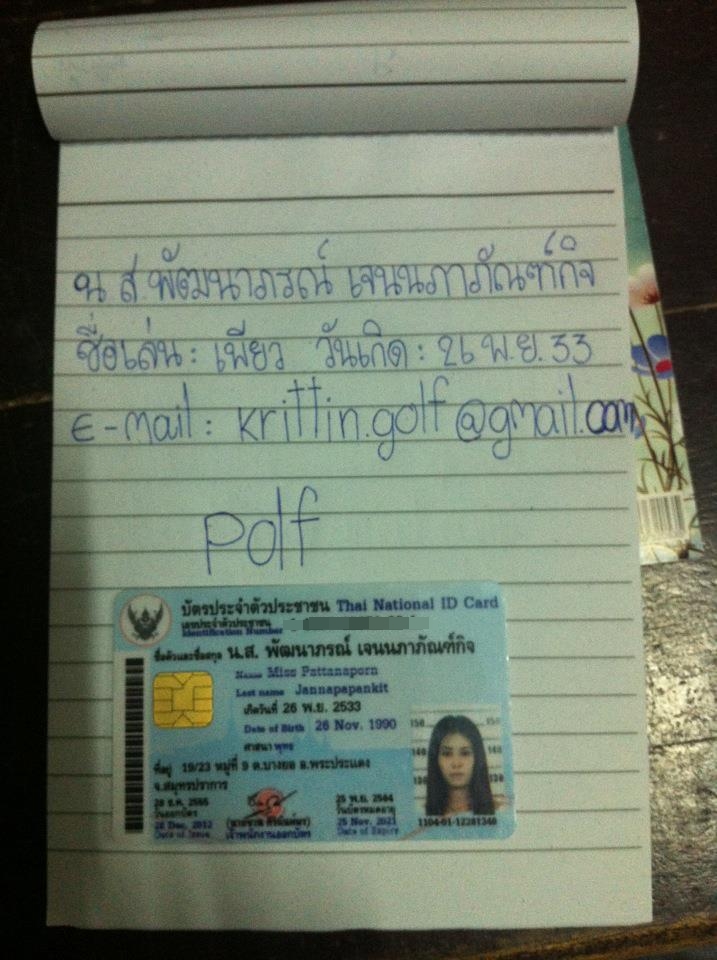 น.ส.พัฒนาภรณ์ เจนนภาภัณฑ์กิจ
ชื่อเล่น : เพียว วันเกิด : 26 พ.ย. 33
E-mail : krittin.golf@gmail.com
Polf
บัตรประจำตัวประชาชน Thai National ID Card
เลขประจำตัวประชาชน
Identification Number
ชื่อตัวและชื่อสกุล น.ส. พัฒนาภรณ์ เจนนภาภัณฑ์กิจ
Name Miss Pattanaporn
Last name Jannapapankit
เกิดวันที่ 26 พ.ย. 2533
Date of Birth 26 Nov. 1990
ศาสนา พุทธ
ที่อยู่ 19/23 หมู่ที่ 9 ต.บางยอ อ.พระประแดง
จ.สมุทรปราการ
28 ธ.ค. 2555
วันออกบัตร
28 Dec. 2012
Date of Issue
เจ้าพนักงานออกบัตร
25 พ.ย. 2564
วันบัตรหมดอายุ
25 Nov. 2021
Date of Expiry
150 150
140 140
130 130
1104-01-12281340